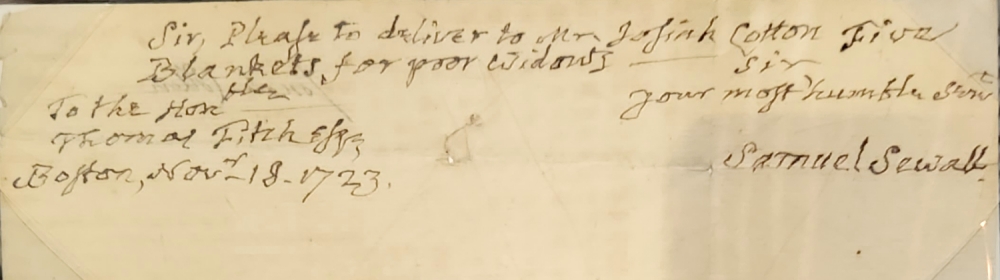 Sir, Please to deliver to Mr. Josiah Cotton Five
Blankets, for poor Widows —— Sir
your most humble Servt
To the Honble
Thomas Fitch Esqr,
Samuel Sewall.
Boston, Novr. 18. 1723.